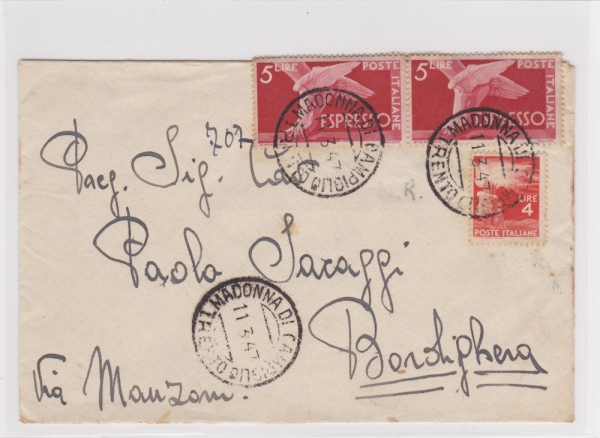 5 LIRE POSTE ITALIANE ESPRESSO
5 LIRE POSTE ITALIANE ESPRESSO
MADONNA DI CAMPIGLIO (TRENTO)
11 3 47
MADONNA DI CAMPIGLIO (TRENTO)
11 3 47
LIRE 4
POSTE ITALIANE
707
Sig.
Paola Saraggi
MADONNA DI CAMPIGLIO (TRENTO)
11 3 47
Bordighera
Via Manzoni.